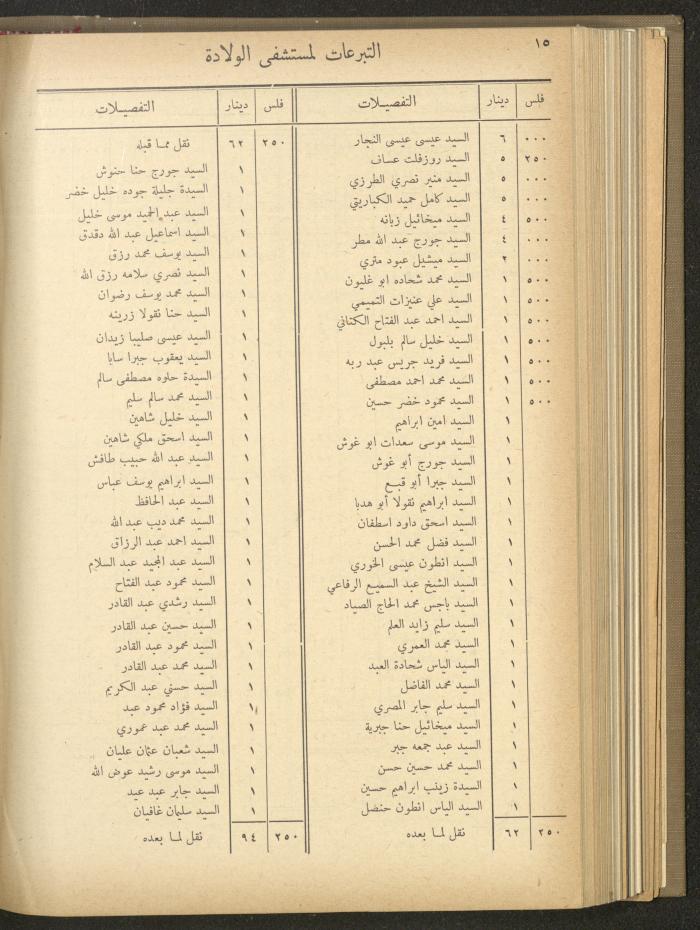 ١٥
التبرعات لمستشفى الولادة
فلس دينار التفصيلات
٠٠٠ ٦ السيد عيسى عيسى النجار
٢٥٠ ٥ السيد روزفلت عساف
٠٠٠ ٥ السيد منير نصري الطرزي
٠٠٠ ٥ السيد كامل حميد الكباريتي
٥٠٠ ٤ السيد ميخائيل زبانه
٠٠٠ ٤ السيد جورج عبد الله مطر
٠٠٠ ٢ السيد ميشيل عبود متري
٥٠٠ ١ السيد محمد شحاده ابو غليون
٥٠٠ ١ السيد علي عنيزات التميمي
٥٠٠ ١ السيد احمد عبد الفتاح الكناني
٥٠٠ ١ السيد خليل سالم بلبول
٥٠٠ ١ السيد فريد جريس عبد ربه
٥٠٠ ١ السيد محمد احمد مصطفى
٥٠٠ ١ السيد محمود خضر حسين
١ السيد امين ابراهيم
١ السيد موسى سعدات ابو غوش
١ السيد جورج أبو غوش
١ السيد جبرا أبو قبع
١ السيد ابراهيم نقولا أبو هدبا
١ السيد اسحق داود اسطفان
١ السيد فضل محمد الحسن
١ السيد انطون عيسى الخوري
١ السيد الشيخ عبد السميع الرفاعي
١ السيد باجس محمد الحاج الصياد
١ السيد سليم زايد العلم
١ السيد محمد العمري
١ السيد الياس شحادة العبد
١ السيد محمد الفاضل
١ السيد سليم جابر المصري
١ السيد ميخائيل حنا جبرية
١ السيد عبد جمعه جبر
١ السيد محمد حسين حسن
١ السيدة زينب ابراهيم حسين
١ السيد الياس انطون حنضل
٢٥٠ ٦٢ نقل لما بعده
فلس دينار التفصيلات
٢٥٠ ٦٢ نقل مما قبله
١ السيد جورج حنا حنوش
١ السيدة جليلة جوده خليل خضر
١ السيد عبد الحميد موسى خليل
١ السيد اسماعيل عبد الله دقدق
١ السيد يوسف محمد رزق
١ السيد نصري سلامه رزق الله
١ السيد محمد يوسف رضوان
١ السيد حنا نقولا زرينه
١ السيد عيسى صليبا زيدان
١ السيد يعقوب جبرا سابا
١ السيدة حلوه مصطفى سالم
١ السيد محمد سالم سليم
١ السيد خليل شاهين
١ السيد اسحق ملكي شاهين
١ السيد عبد الله حبيب طافش
١ السيد ابراهيم يوسف عباس
١ السيد عبد الحافظ
١ السيد محمد ديب عبد الله
١ السيد احمد عبد الرزاق
١ السيد عبد المجيد عبد السلام
١ السيد محمود عبد الفتاح
١ السيد رشدي عبد القادر
١ السيد حسين عبد القادر
١ السيد محمود عبد القادر
١ السيد محمد عبد القادر
١ السيد حسني عبد الكريم
١ السيد فؤاد محمود عبد
١ السيد محمد عبد عموري
١ السيد شعبان عثمان عليان
١ السيد موسى رشيد عوض الله
١ السيد جابر عبد عيد
١ السيد سليمان غافيان
٢٥٠ ٩٤ نقل لما بعده